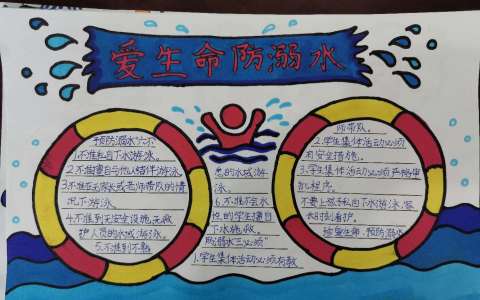 爱生命防溺水
预防溺水“六不
1.不准私自下水游泳。
2.不准擅自与他人结伴游泳。
3.不准在无家长或老师带队的情
况下游泳。
4.不准到无安全设施、无救
护人员的水域游泳。
5.不准到不熟
悉的水域游
泳。
6.不准不会水
性的学生擅自
下水施救。
防溺水三必须”
1.学生集体活动必须有教
师带队。
2.学生集体活动必须
有安全措施。
3.学生集体活动必须严格审
批程序。
不要上
私自下水游泳,
大时刻看护。
生命,预防溺水